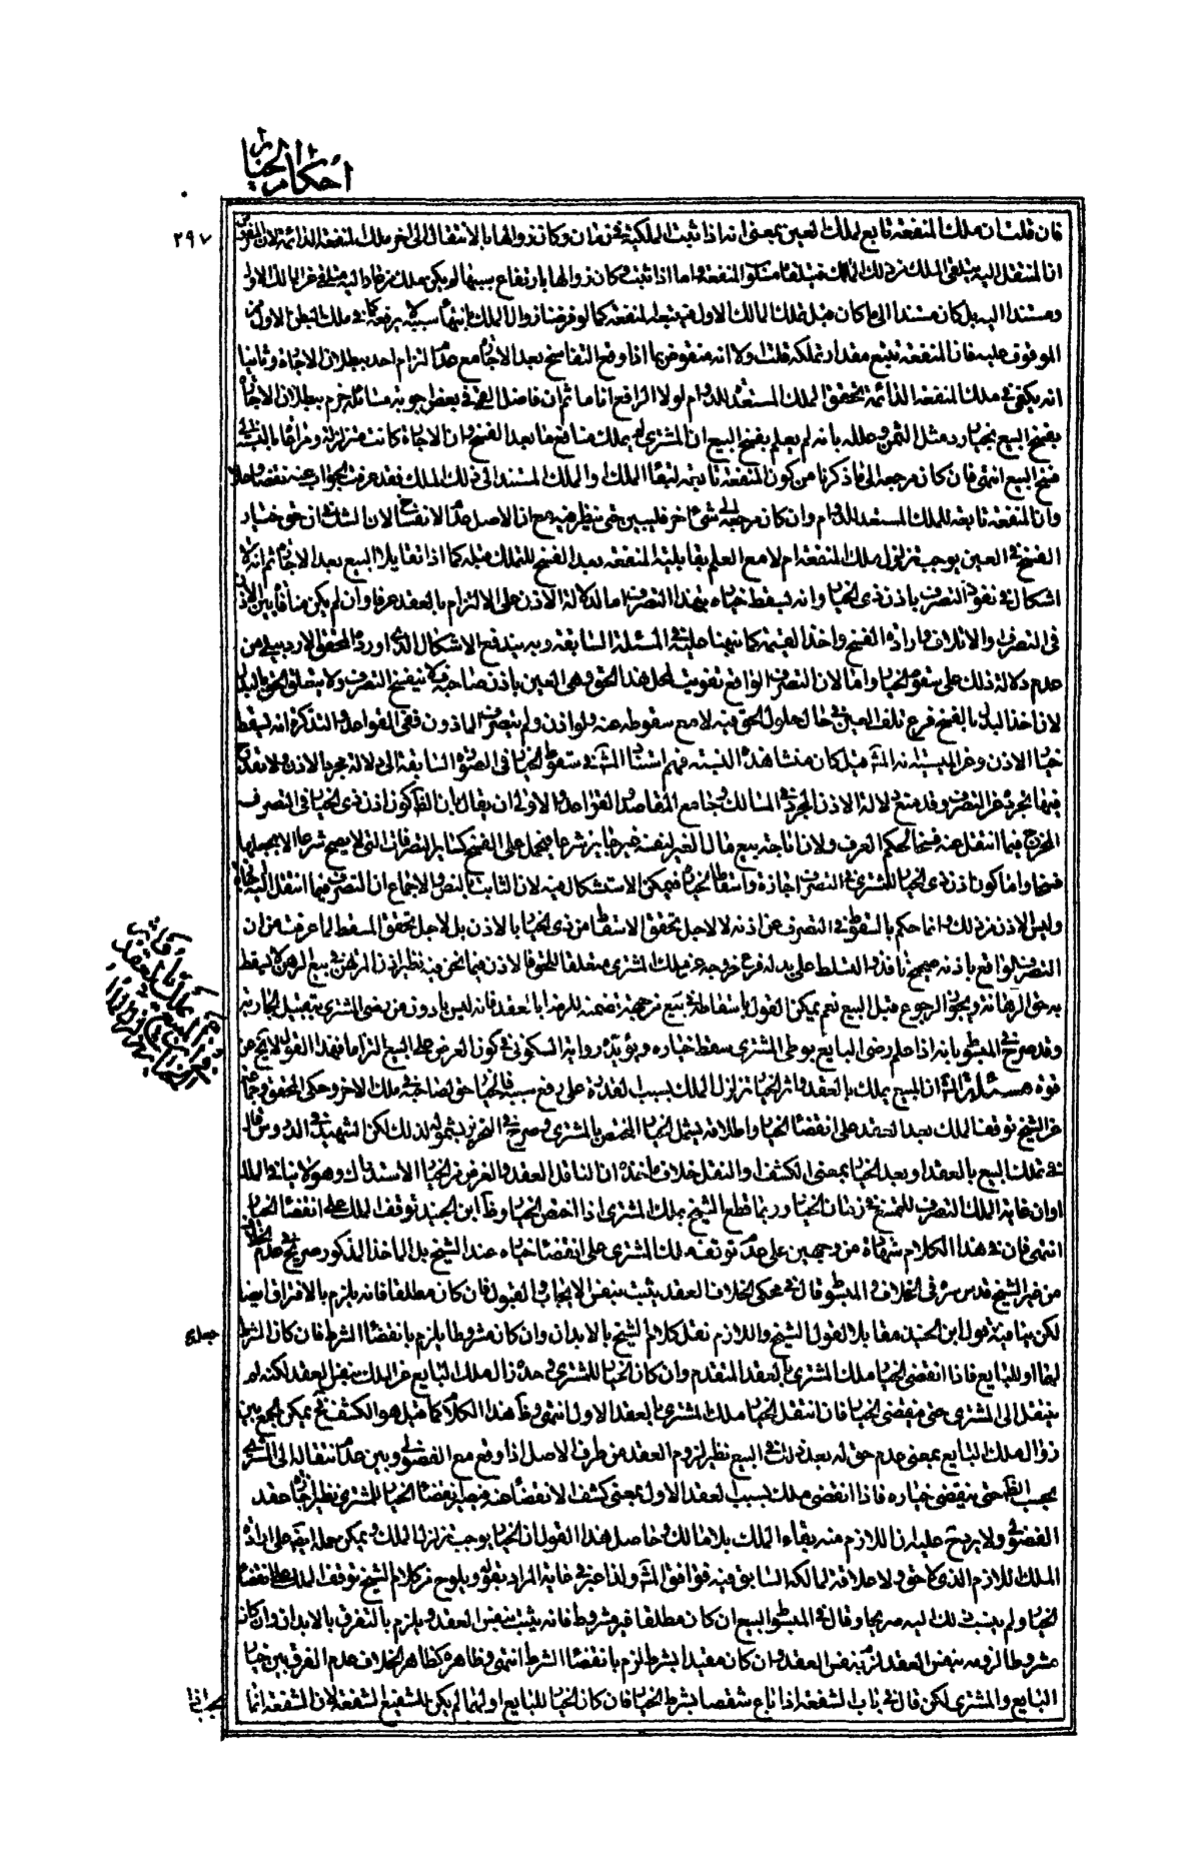 احكام الخيار
٢٩٧
فان قلت ان ملك المنفعة تابع لملك العين بمعنى انه اذا ثبت الملكية فى زمان وكان زوالها بالانتقال الى اخر ملك المنفعة الدائمة لان المفروض
ان المنتقل اليه يتلقى الملك من ذلك المالك فيتلقاه مسلوب المنفعة واما اذا ثبت وكان زوالها بارتفاع سببها لم يكن ملك من عاد اليه متلقى عن المالك الاول
ومستندا اليه بل كان مستندا الى ما كان قبل تملك المالك الاول فيتبعه المنفعة كما لو فرضنا زوال الملك بانتهاء سببه لا برفعه كما فى ملك البطن الاول من
الموقوف عليه فان المنفعة تتبع مقدار تملكه قلت اولا انه منقوض بما اذا وقع التفاسخ بعد الاجارة مع عدم التزام احد ببطلان الاجارة وثانيا
انه يكفى فى ملك المنفعة الدائمة تحقق الملك المستعد للدوام لولا الرافع انا ما ثم ان فاضل القمى فى بعض اجوبة مسائله جزم ببطلان الاجارة
بفسخ البيع بخيار رد مثل الثمن وعلله بانه لم يعلم بفسخ البيع ان المشترى لم يملك منافع ما بعد الفسخ وان الاجارة كانت متزلزلة ومراعاة بالنسبة الى
فسخ البيع انتهى فان كان مرجعه الى ما ذكرنا من كون المنفعة تابعة لبقاء الملك والملك المستند الى ذلك الملك فقد عرفت الجواب عنه نقضا وحلا
وان المنفعة تابعة للملك المستعد للدوام وان كان مرجعه الى شىء اخر فليبين حتى ينظر فيه مع ان الاصل عدم الانفساخ لان الشك فى ان حق خيار
الفسخ فى العين يوجب تزلزل ملك المنفعة ام لا مع العلم بقابلية المنفعة بعد الفسخ للتملك قبله كما اذا تقايلا البيع بعد الاجارة ثم انه لا
اشكال فى نفوذ التصرف باذن ذى الخيار وانه يسقط خياره بهذا التصرف اما لدلالة الاذن على الالتزام بالعقد عرفا وان لم يكن منافاة بين الاذن
فى التصرف والاتلاف وارادة الفسخ واخذ القيمة كما نبهنا عليه فى المسئلة السابقة وبه يندفع الاشكال الذى اورده المحقق الاردبيلى من
عدم دلالة ذلك على سقوط الخيار واما لان التصرف الواقع تفويت لمحل هذا الحق وهى العين باذن صاحبه فلا ينفسخ التصرف ولا يتعلق الحق بالبدل
لان اخذ البدل بالفسخ فرع تلف العين فى حال حلول الحق فيه لا مع سقوطه عنه ولو اذن ولم يتصرف الماذون ففى القواعد والتذكرة انه يسقط
خيار الاذن وعن الميسية انه المش قيل كان منشأ هذه النسبة فهم استناد المش فى سقوط الخيار فى الصورة السابقة الى دلالة مجرد الاذن ولا يقدح
فيها تجرده عن التصرف وقد منع دلالة الاذن المجرد فى المسالك وجامع المقاصد والقواعد والاولى ان يقال بان الظ كون اذن ذى الخيار فى التصرف
المخرج فيما انتقل عنه فسخا لحكم العرف ولان اباحة بيع مال الغير لنفسه غير جايز شرعا فيحمل على الفسخ كساير التصرفات التى لا يصح شرعا الا بجعلها
فسخا واما كون اذن ذى الخيار للمشترى فى التصرف اجازة واسقاطا لخياره فيمكن الاستشكال فيه لان الثابت بالنص والاجماع ان التصرف فيما انتقل اليه اجازة
وليس الاذن من ذلك وانما حكم بالسقوط فى التصرف عن اذنه لا لاجل تحقق الاسقاط من ذى الخيار بالاذن بل لاجل تحقق المسقط لما عرفت من ان
التصرف الواقع باذنه صحيح نافذ والتسلط على بدله فرع خروجه عن ملك المشترى متعلقا للحق فالاذن فيما نحن فيه نظير اذن المرتهن فى بيع الرهن لا يسقط
به حق الرهانة ويجوز الرجوع قبل البيع نعم يمكن القول باسقاطه من جهة تضمنه للرضا بالعقد فانه ليس بادون من رضى المشترى بتقبيل الجارية
وقد صرح فى المبسوط بانه اذا علم رضى البايع بوطى المشترى سقط خياره ويؤيده رواية السكونى فى كون العرض على البيع التزاما فهذا القول لا يخ عن
قوة مسئلة المش ان المبيع يملك بالعقد واثر الخيار تزلزل الملك بسبب القدرة على رفع سببه فالخيار حق لصاحبه فى ملك الاخر وحكى المحقق وجماعة
عن الشيخ توقف الملك بعد العقد على انقضاء الخيار واطلاقه يشمل الخيار المختص بالمشترى وصرح فى التحرير بشموله لذلك لكن الشهيد فى الدروس قال
فى تملك المبيع بالعقد او بعد الخيار بمعنى الكشف او النقل خلاف ماخذه ان الناقل العقد والغرض من الخيار الاستدراك وهو لا ينافى الملك
او ان غاية الملك التصرف الممتنع فى زمان الخيار وربما قطع الشيخ بملك المشترى اذا اختص الخيار وظ ابن الجنيد توقف الملك على انقضاء الخيار
انتهى فان فى هذا الكلام شهادة من وجهين على عدم توقف ملك المشترى على انقضاء خياره عند الشيخ بل الماخذ المذكور صريح فى عدم الخلاف
من غير الشيخ قدس سره فى الخلاف والمبسوط قال فى محكى الخلاف العقد يثبت بنفس الايجاب والقبول فان كان مطلقا فانه يلزم بالافتراق ايضا
لكن ينافيه قول ابن الجنيد مقابلا لقول الشيخ واللازم نقل كلام الشيخ بالابدان وان كان مشروطا يلزم بانقضاء الشرط فان كان الشرط
لهما او للبايع فاذا انقضى الخيار ملك المشترى بالعقد المتقدم وان كان الخيار للمشترى وحده زال ملك البايع عن الملك بنفس العقد لكنه لم
ينتقل الى المشترى حتى ينقضى الخيار فان انتقل الخيار ملك المشترى بالعقد الاول انتهى وظ هذا الكلام كما قيل هو الكشف فح يمكن الجمع بين
زوال ملك البايع بمعنى عدم حق له بعد ذلك فى المبيع نظير لزوم العقد من طرف الاصيل اذا وقع مع الفضولى وبين عدم انتقاله الى المشترى
بحسب الظ حتى ينقضى خياره فاذا انقضى ملك بسبب العقد الاول بمعنى كشف الانقضاء عنه فيصير انقضاء الخيار للمشترى نظير اجازة عقد
الفضولى ولا يرد ح عليه ان اللازم منه بقاء الملك بلا مالك وحاصل هذا القول ان الخيار يوجب تزلزل الملك ويمكن حمله ايضا على ارادة
الملك اللازم الذى لا حق ولا علاقة لمالكه السابق فيه فوافق المش ولذا عبر فى غاية المراد بقوله ويلوح من كلام الشيخ توقف الملك على انقضاء
الخيار ولم ينسب ذلك اليه صريحا وقال فى المبسوط البيع ان كان مطلقا غير مشروط فانه يثبت بنفس العقد ويلزم بالتفرق بالابدان وان كان
مشروطا لزومه بنفس العقد لزم بنفس العقد وان كان مقيدا بشرط لزم بانقضاء الشرط انتهى وظاهره كظاهر الخلاف عدم الفرق بين خيار
البايع والمشترى لكن قال فى باب الشفعة اذا باع شقصا بشرط الخيار فان كان الخيار للبايع او لهما لم يكن للشفيع الشفعة لان الشفعة انما